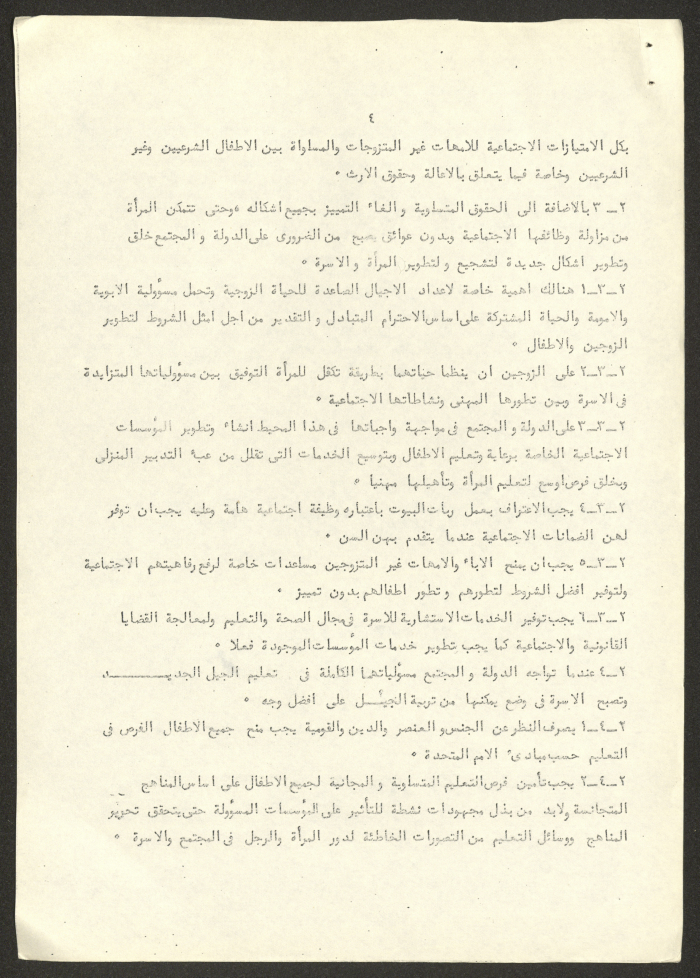 ٤
بكل الامتيازات الاجتماعية للامهات غير المتزوجات والمساواة بين الاطفال الشرعيين وغير
الشرعيين وخاصة فيما يتعلق بالاعالة وحقوق الارث .
٢ــ٣ بالاضافة الى الحقوق المتساوية والغاء التمييز بجميع اشكاله ،وحتى تتمكن المرأة
من مزاولة وظائفها الاجتماعية وبدون عوائق يصبح من الضرورى على الدولة والمجتمع خلق
وتطوير اشكال جديدة لتشجيع ولتطوير المرأة والاسرة .
٢ــ٣ــ١ هنالك اهمية خاصة لاعداد الاجيال الصاعدة للحياة الزوجية وتحمل مسؤولية الابوية
والامومة والحياة المشتركة على اساس الاحترام المتبادل والتقدير من اجل امثل الشروط لتطوير
الزوجين والاطفال .
٢ــ٣ــ٢ على الزوجين ان ينظما حياتهما بطريقة تكفل للمرأة التوفيق بين مسؤولياتها المتزايدة
فى الاسرة وبين تطورها المهنى ونشاطاتها الاجتماعية .
٢ــ٣ــ٣ على الدولة والمجتمع فى مواجهة واجباتها فى هذا المحيط انشاء وتطوير المؤسسات
الاجتماعية الخاصة برعاية وتعليم الاطفال وبتوسيع الخدمات التى تقلل من عبء التدبير المنزلى
وبخلق فرص اوسع لتعليم المرأة وتأهيلها مهنيا .
٢ــ٣ــ٤ يجب الاعتراف بعمل ربات البيوت باعتباره وظيفة اجتماعية هامة وعليه يجب ان توفر
لهن الضمانات الاجتماعية عندما يتقدم بهن السن .
٢ــ٣ــ٥ يجب ان يمنح الاباء والامهات غير المتزوجين مساعدات خاصة لرفع رفاهيتهم الاجتماعية
ولتوفير افضل الشروط لتطورهم وتطور اطفالهم بدون تمييز .
٢ــ٣ــ٦ يجب توفير الخدمات الاستشارية للاسرة فى مجال الصحة والتعليم ولمعالجة القضايا
القانونية والاجتماعية كما يجب تطوير خدمات المؤسسات الموجودة فعلا .
٢ــ٤ عندما تواجه الدولة والمجتمع مسؤلياتها الكاملة فى تعليم الجيل الجديــــــــد
وتصبح الاسرة فى وضع يمكنها من تربية الجيــل على افضل وجه .
٢ــ٤ــ١ بصرف النظر عن الجنس والعنصر والدين والقومية يجب منح جميع الاطفال الفرص فى
التعليم حسب مبادىء الامم المتحدة .
٢ــ٤ــ٢ يجب تأمين فرص التعليم المتساوية والمجانية لجميع الاطفال على اساس المناهج
المتجانسة ولابد من بذل مجهودات نشطة للتأثير على المؤسسات المسؤولة حتى يتحقق تحرير
المناهج ووسائل التعليم من التصورات الخاطئة لدور المرأة والرجل فى المجتمع والاسرة .